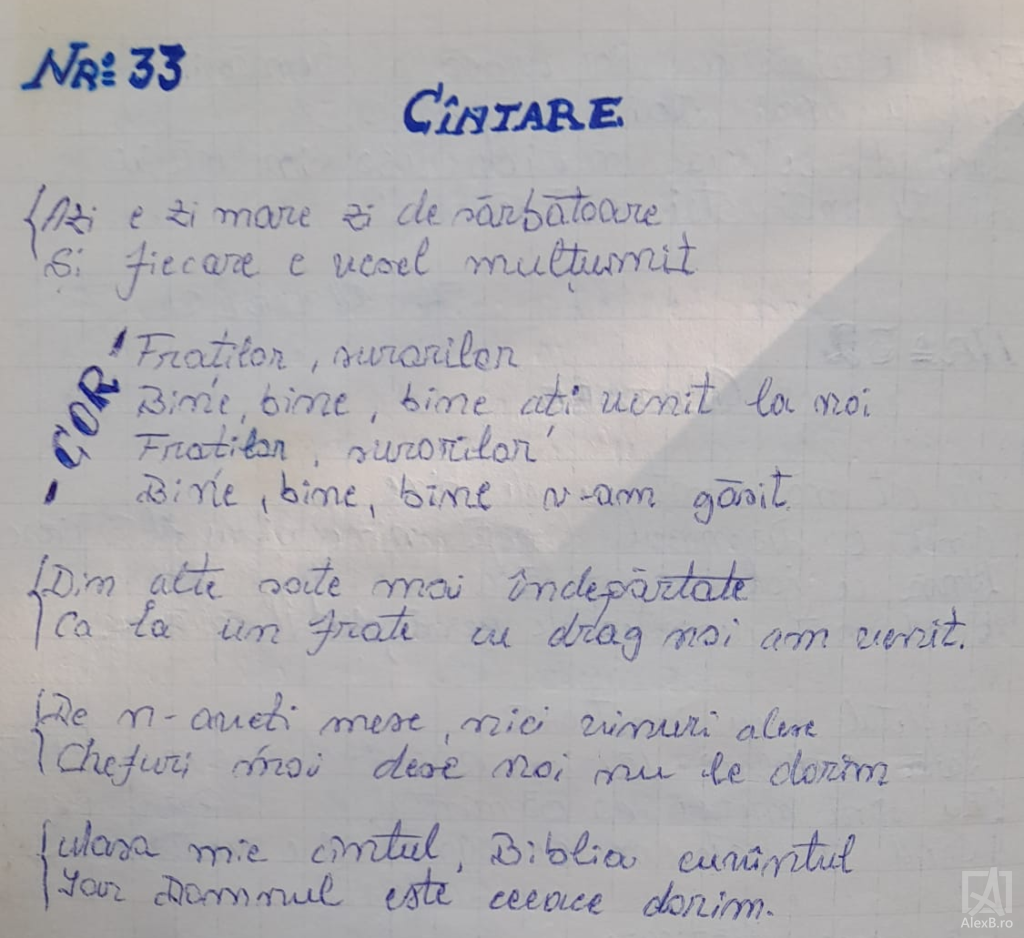 Nr: 33
CÎNTARE
Azi e zi mare zi de sărbătoare
Și fiecare e vesel mulțumit
COR
Fraților, surorilor
Bine, bine, bine ați venit la noi
Fraților, surorilor
Bine, bine, bine v-am găsit
Din alte sate mai îndepărtate
Ca la un frate cu drag noi am venit.
De n-aveti mese, nici vinuri alese
Chefuri mai dese noi nu le dorim
Masa mie cîntul, Biblia cuvîntul
Iar Domnul este ceeace dorim.
AlexB.ro